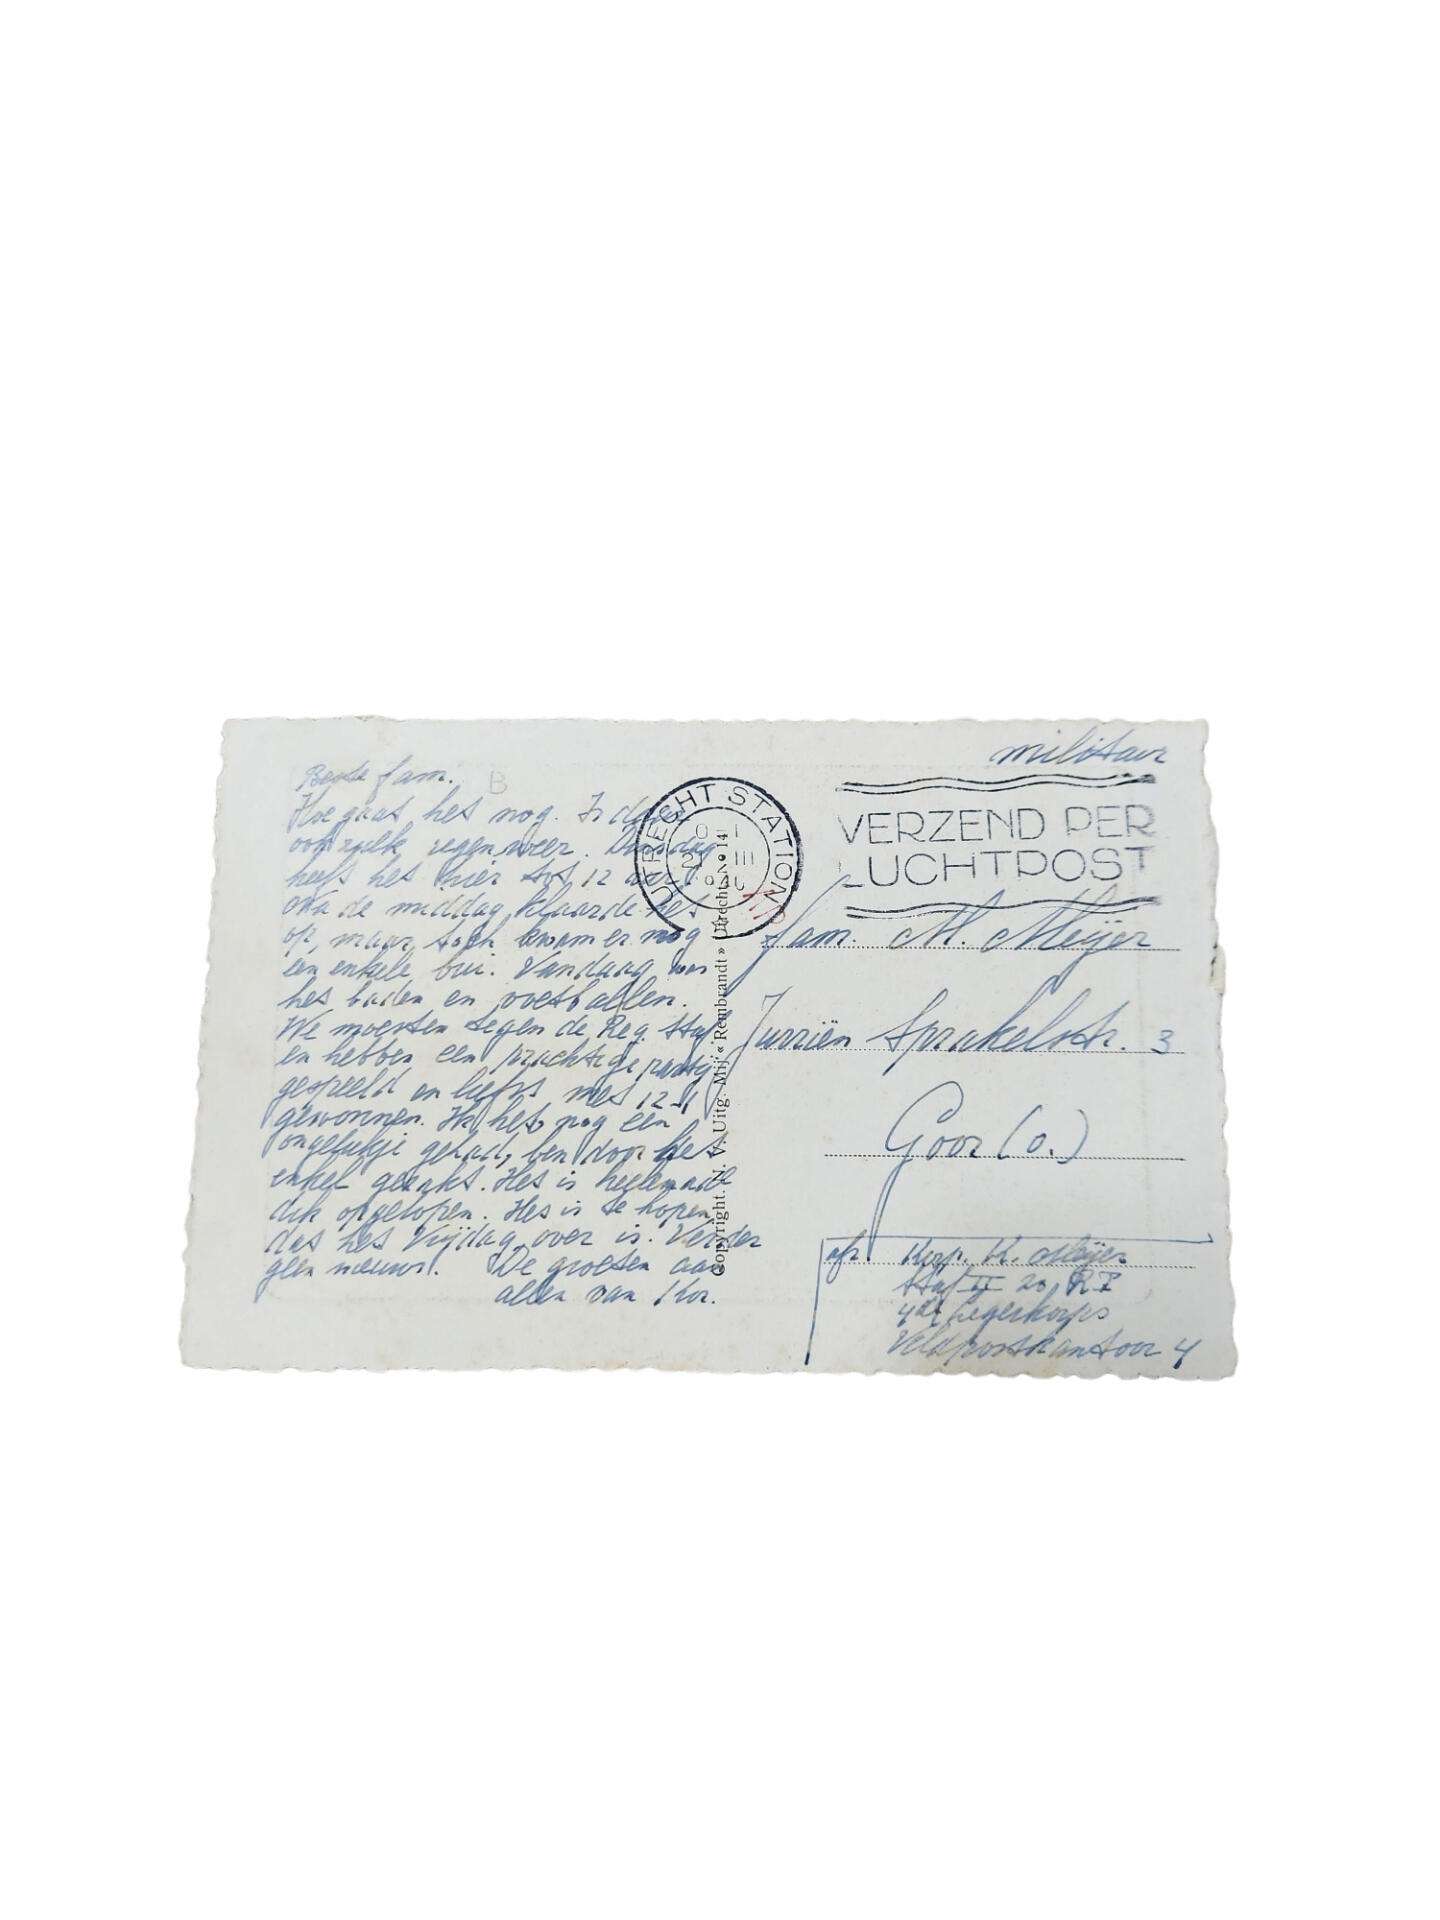 Beste fam. B
Hoe gaat het nog. Is daar
ook zulk regenweer. Dinsdag
heeft het hier tot 12 uur
Na de middag klaarde het
op, maar toch kwam er nog
een enkele bui. Vandaag was
het baden en voetballen.
We moesten tegen de Reg. Staf
en hebben een prachtige partij
gespeeld en liefst met 12-1
gewonnen. Ik heb nog een
ongelukje gehad, ben door het
enkel geraakt. Het is heelemaal
dik opgelopen. Het is te hopen
dat het Vrijdag over is. Verder
geen nieuws. De groeten aan
allen van Kor.
Copyright. N. V. Uitg. Mij « Rembrandt » Utrecht No 14
UTRECHT STATION
III
militair
VERZEND PER
LUCHTPOST
Fam. M. Meijer
Jurriën Sprakelstr. 3
Goor (O.)
afz. Korp. K. Meijer
Staf II 20 R I
4de Legerkorps
Veldpostkantoor 4